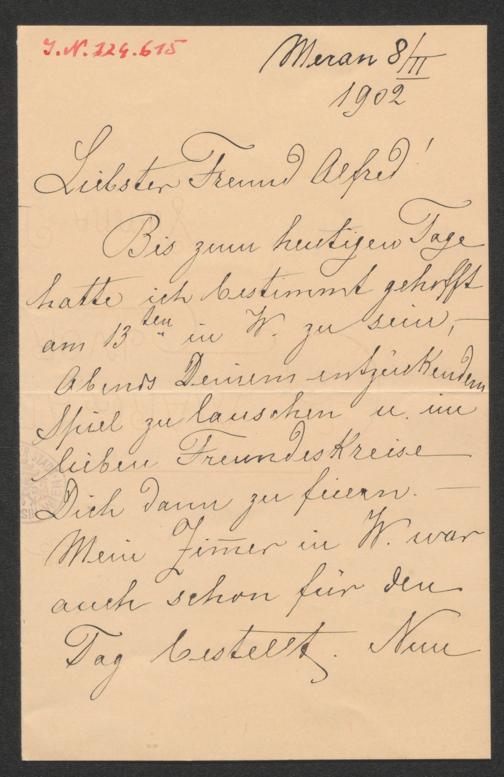 J.N. 124.615
Meran 8/II
1902
Liebster Freund Alfred!
Bis zum heutigen Tage
hatte ich bestimmt gehofft
am 13ten in W. zu sein, –
Abends Deinem entzückendem
Spiel zu lauschen u. im
lieben Freundeskreise
Dich dann zu feiern. –
Mein Zim̅er in W. war
auch schon für den
Tag bestellt. Nun